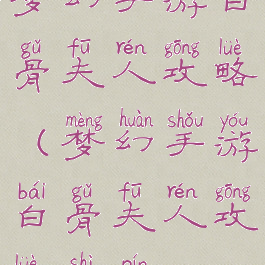 梦幻手游白
gǔ fū rén gōng lüè
骨夫人攻略
mèng huàn shǒu yóu
(梦幻手游
bái gǔ fū rén gōng
白骨夫人攻
lüè shì pín